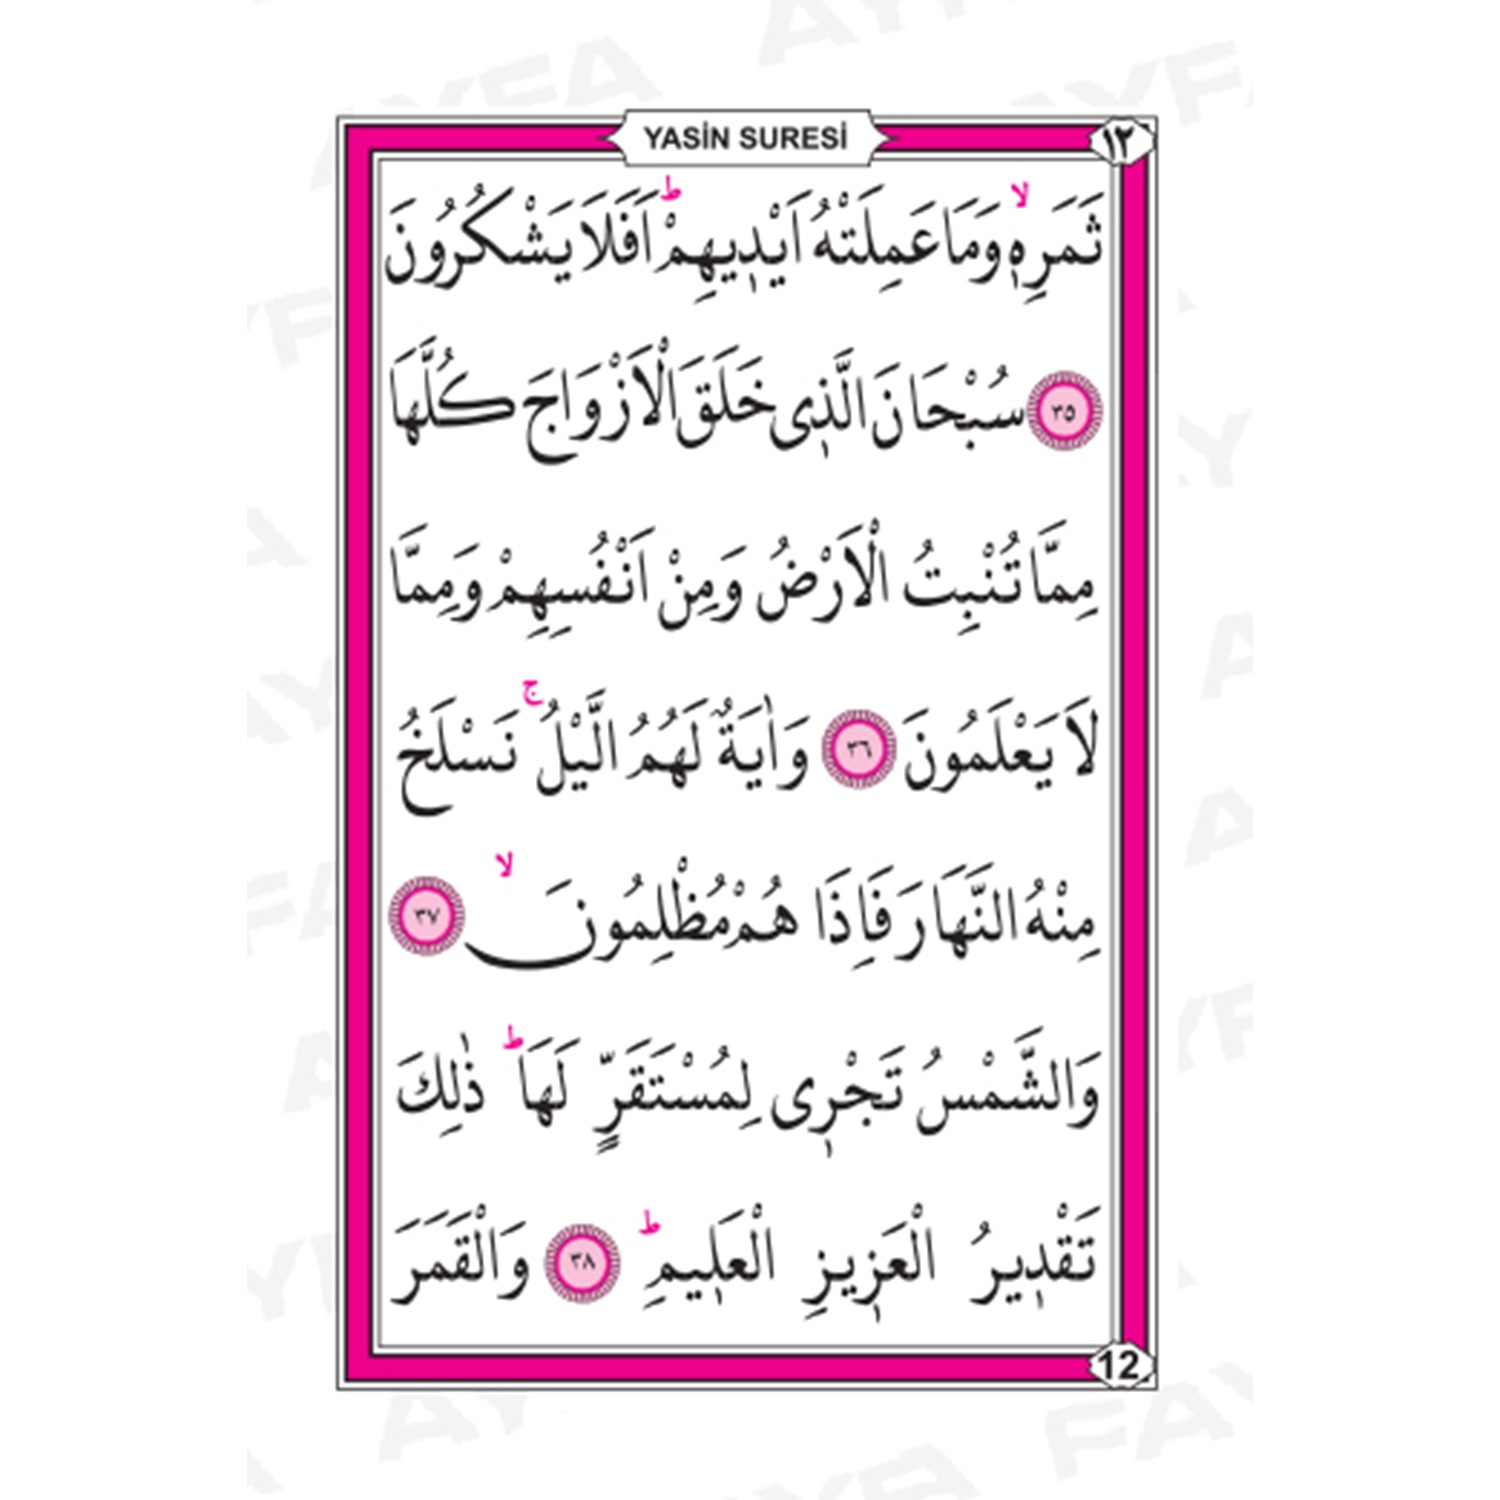 YASİN SURESİ
١٢
ثَمَرِهٖۙ وَمَا عَمِلَتْهُ اَيْدٖيهِمْۜ اَفَلَا يَشْكُرُونَ
٣٥ سُبْحَانَ الَّذٖى خَلَقَ الْاَزْوَاجَ كُلَّهَا
مِمَّا تُنْبِتُ الْاَرْضُ وَمِنْ اَنْفُسِهِمْ وَمِمَّا
لَا يَعْلَمُونَ ٣٦ وَاٰيَةٌ لَهُمُ الَّيْلُۚ نَسْلَخُ
مِنْهُ النَّهَارَ فَاِذَا هُمْ مُظْلِمُونَۙ ٣٧
وَالشَّمْسُ تَجْرٖى لِمُسْتَقَرٍّ لَهَاۜ ذٰلِكَ
تَقْدٖيرُ الْعَزٖيزِ الْعَلٖيمِۜ ٣٨ وَالْقَمَرَ
12
AYFA